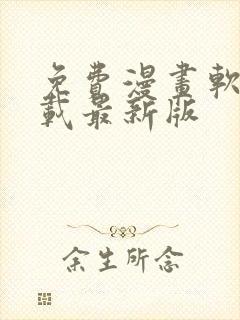 免費漫畫軟
載最新版
余生所念